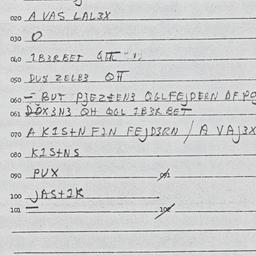 020 A VAS LAL3X
030 O
040 IB3RBET QTT
050 DUS ZELB3 QTT
060 = BUT PJEZEEN3 QGLFEJDERN DF PO
061 DÖX3N3 QH QGL IB3R BET
070 A KIS+N FIN FEJD3RN / A VAJ3X
080 KIS+NS
090 PUX 091
100 JAS+IK
101 102